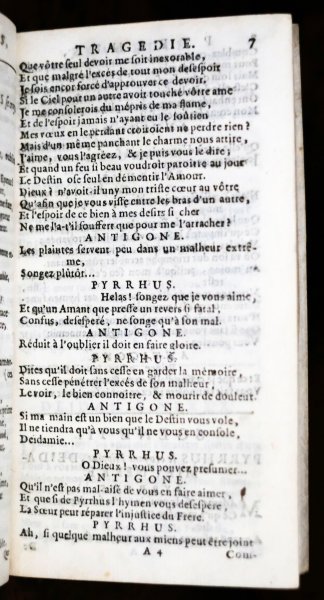 TRAGEDIE. 7
Que vôtre seul devoir me soit inexorable,
Et que malgré l'excés de tout mon desespoir
Je sois encor forcé d'approuver ce devoir.
Si le Ciel pour un autre avoit touché vôtre ame
Je me consolerois du mépris de ma flame,
Et de l'espoir jamais n'ayant eu le soûtien
Mes vœux en le perdant croiroient ne perdre rien?
Mais d'un même panchant le charme nous attire,
J'aime, vous l'agréez, & je puis vous le dire;
Et quand un feu si beau voudroit paroître au jour
Le Destin ose seul en démentir l'Amour.
Dieux! n'avoit-il uny mon triste cœur au vôtre
Qu'afin que je vous visse entre les bras d'un autre,
Et l'espoir de ce bien à mes desirs si cher
Ne me l'a-t'il souffert que pour me l'arracher?
ANTIGONE.
Les plaintes servent peu dans un malheur extrê-
me,
Songez plûtôr...
PYRRHUS.
Helas! songez que je vous aime,
Et qu'un Amant que presse un revers si fatal,
Confus, desesperé, ne songe qu'à son mal.
ANTIGONE.
Réduit à l'oublier il doit en faire gloire.
PYRRHUS.
Dites qu'il doit sans cesse en garder la mémoire,
Sans cesse pénétrer l'excés de son malheur,
Le voir, le bien connoître, & mourir de douleur.
ANTIGONE.
Si ma main est un bien que le Destin vous vole,
Il ne tiendra qu'à vous qu'il ne vous en console,
Deidamie...
PYRRHUS.
O Dieux! vous pouvez presumer...
ANTIGONE.
Qu'il n'est pas mal-aisé de vous en faire aimer,
Et que si de Pyrrhus l'hymen vous desespere,
La Sœur peut réparer l'injustice du Frere.
PYRRHUS.
Ah, si quelque malheur aux miens peut être joint
A 4 Com-